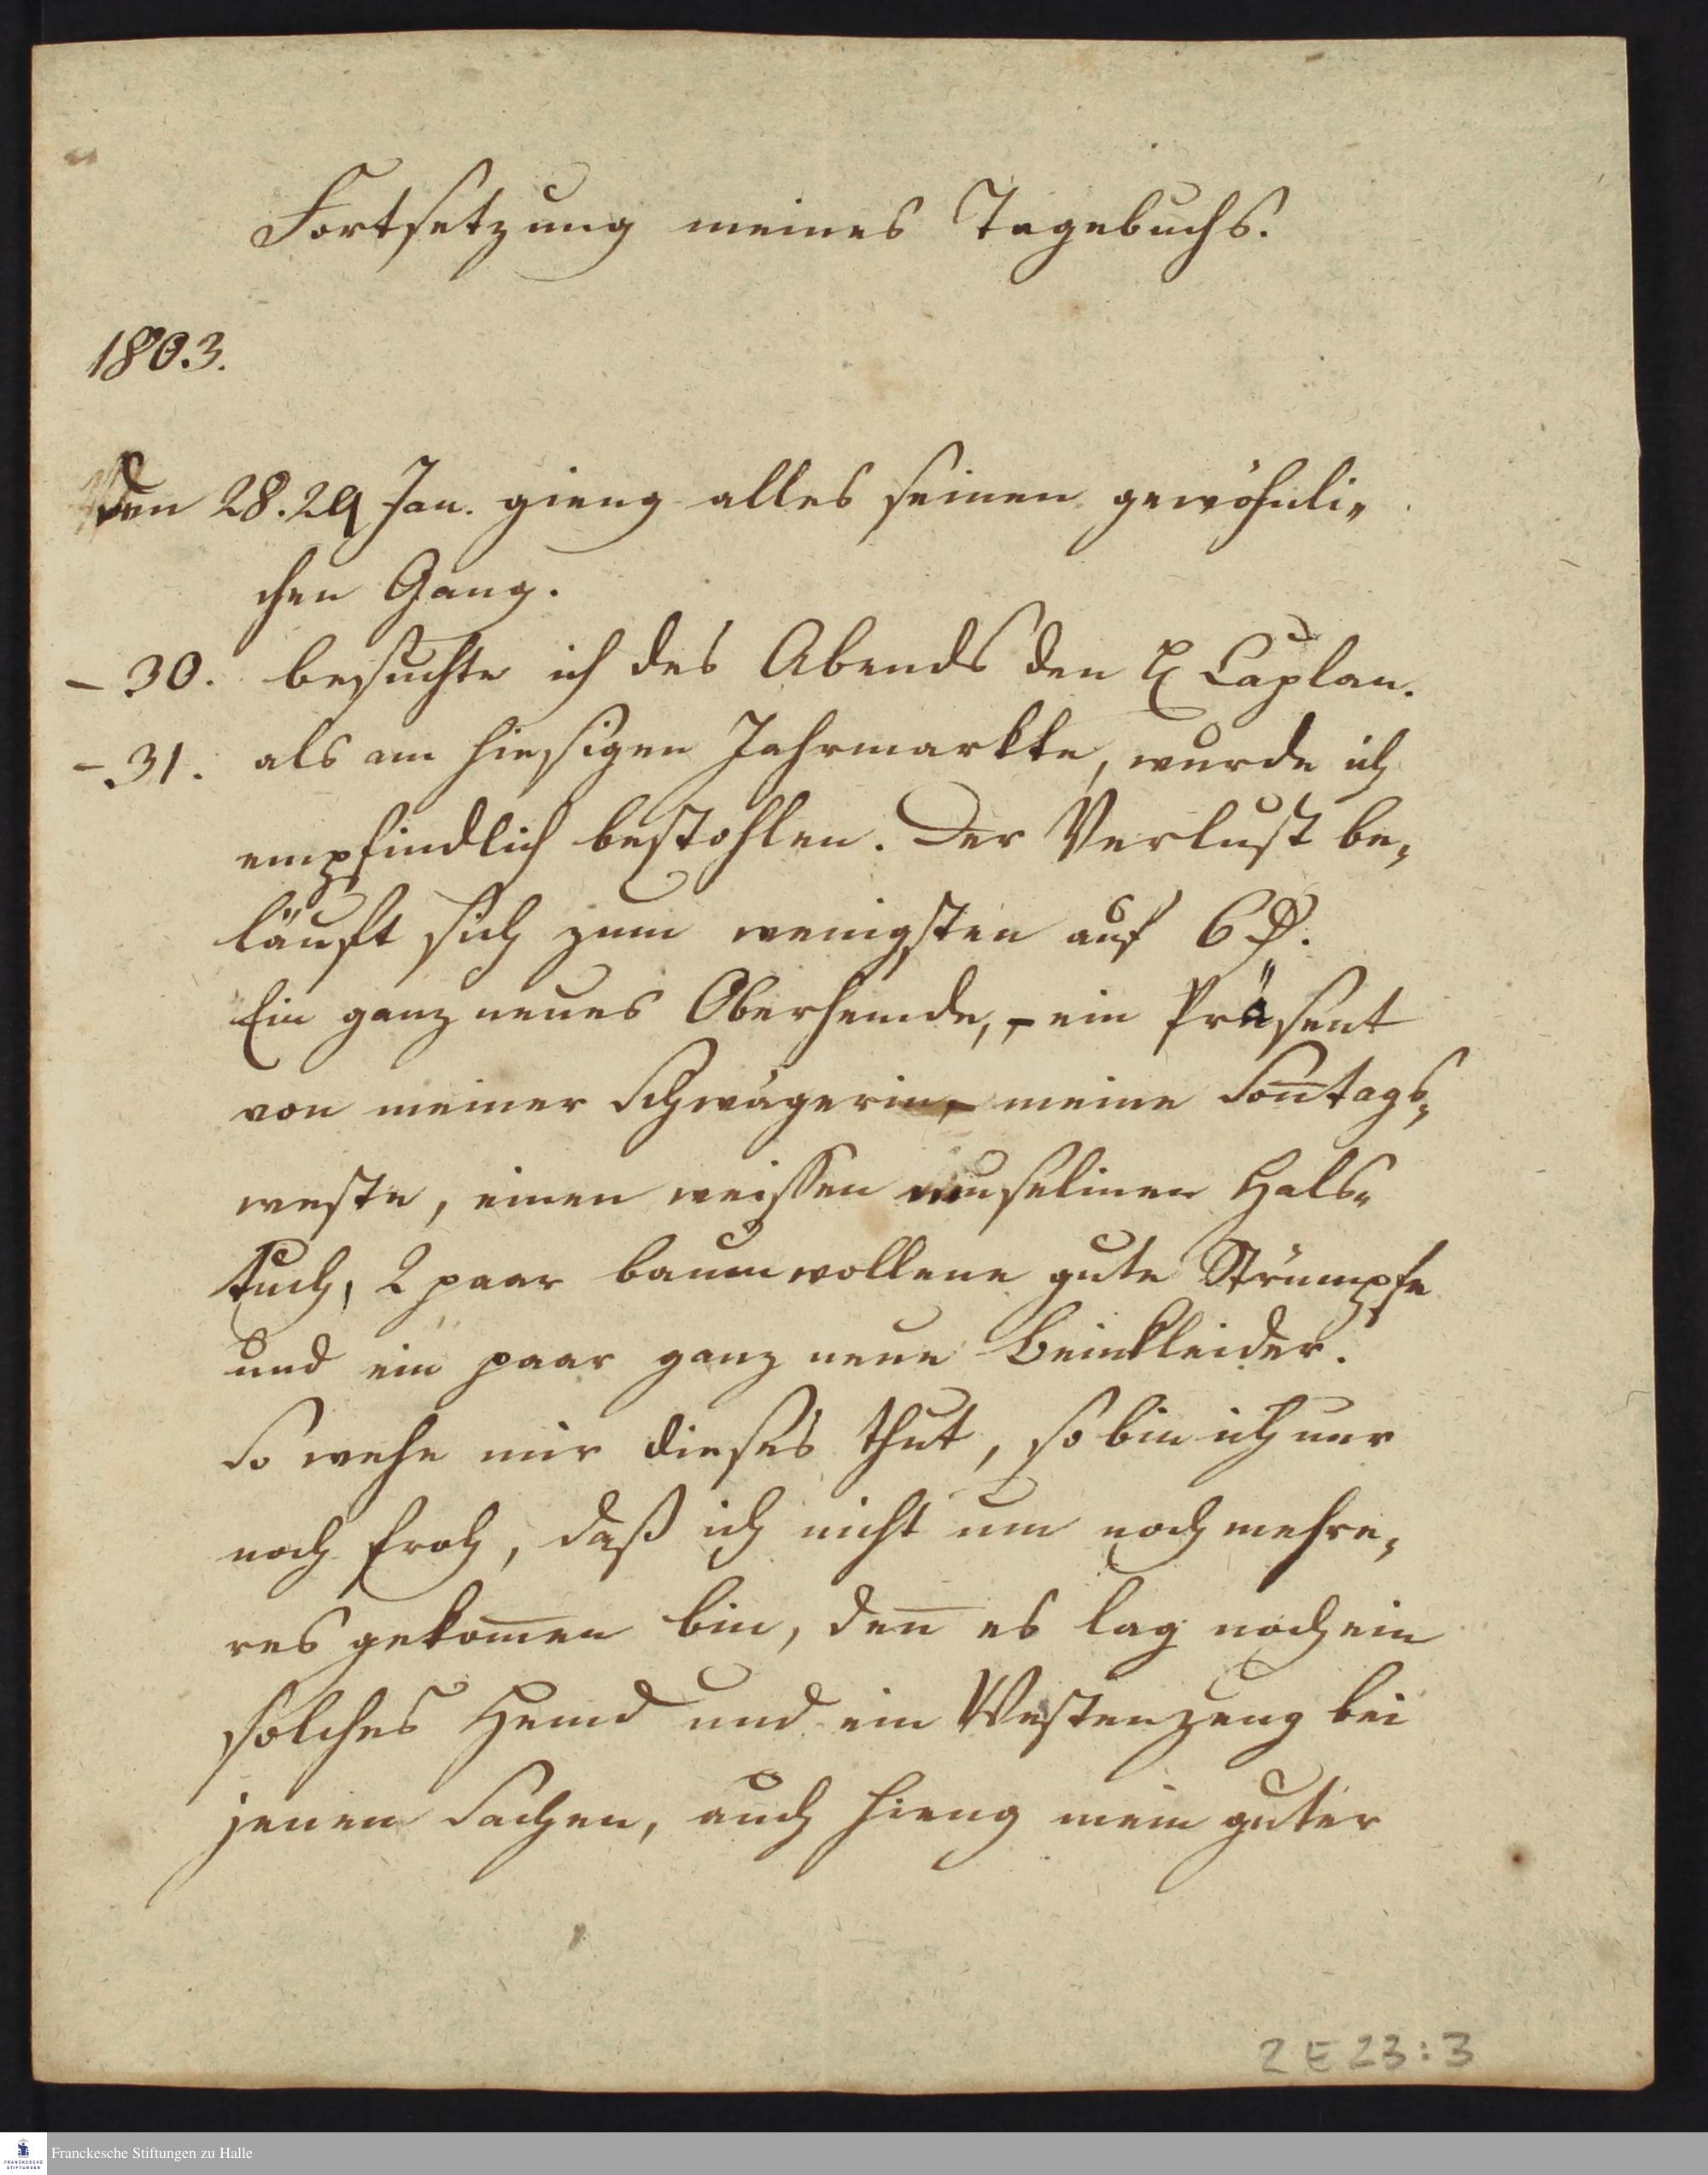 Fortsetzung meines Tagebuchs.
1803.
Den 28. 29 Jan. gieng alles seinen gewöhnli-
chen Gang.
- 30. besuchte ich des Abends den H Caplan.
- 31. als am hiesigen Jahrmarkte, wurde ich
empfindlich bestohlen. Der Verlust be-
läuft sich zum wenigsten auf 6
Ein ganz neues Oberhemde, - ein Präsent
von meiner Schwägerin, - meine Son̅tags-
weste, einen weissen musselinen Hals-
tuch, 2 paar baumwollene gute Strümpfe
und ein paar ganz neue Beinkleider.
So wehe mir dieses thut, so bin ich nur
noch froh, daß ich nicht um noch mehre-
res gekom̅en bin, den̅ es lag noch ein
solches Hemd und ein Westenzeug bei
jenen Sachen, auch hieng mein guter
2 E 23:3
Franckesche Stiftungen zu Halle